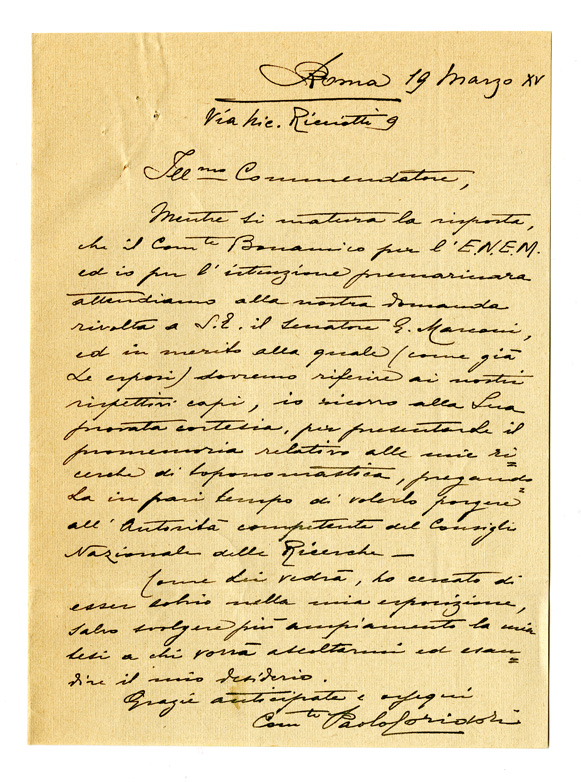 Roma 19 Marzo XV
Via Nic. Ricciotti 9
Ill.mo Commendatore,
Mentre si matura la risposta,
che il Com.te Bonamico per l'E.N.E.M.
ed io per l'istruzione premarinara
attendiamo alla nostra domanda
rivolta a S.E. il Senatore G. Marconi,
ed in merito alla quale (come già
Le esposi) dovremo riferire ai nostri
rispettivi capi, io ricorro alla Sua
provata cortesia, per presentarLe il
promemoria relativo alle mie ri=
cerche di toponomastica, pregando=
La in pari tempo di volerlo porgere
all'Autorità competente del Consiglio
Nazionale delle Ricerche —
Come Lei vedrà, ho cercato di
esser sobrio nella mia esposizione,
salvo svolgere più ampiamente la mia
tesi a chi vorrà ascoltarmi ed esau=
dire il mio desiderio.
Grazie anticipate e ossequi
Com.te Paolo